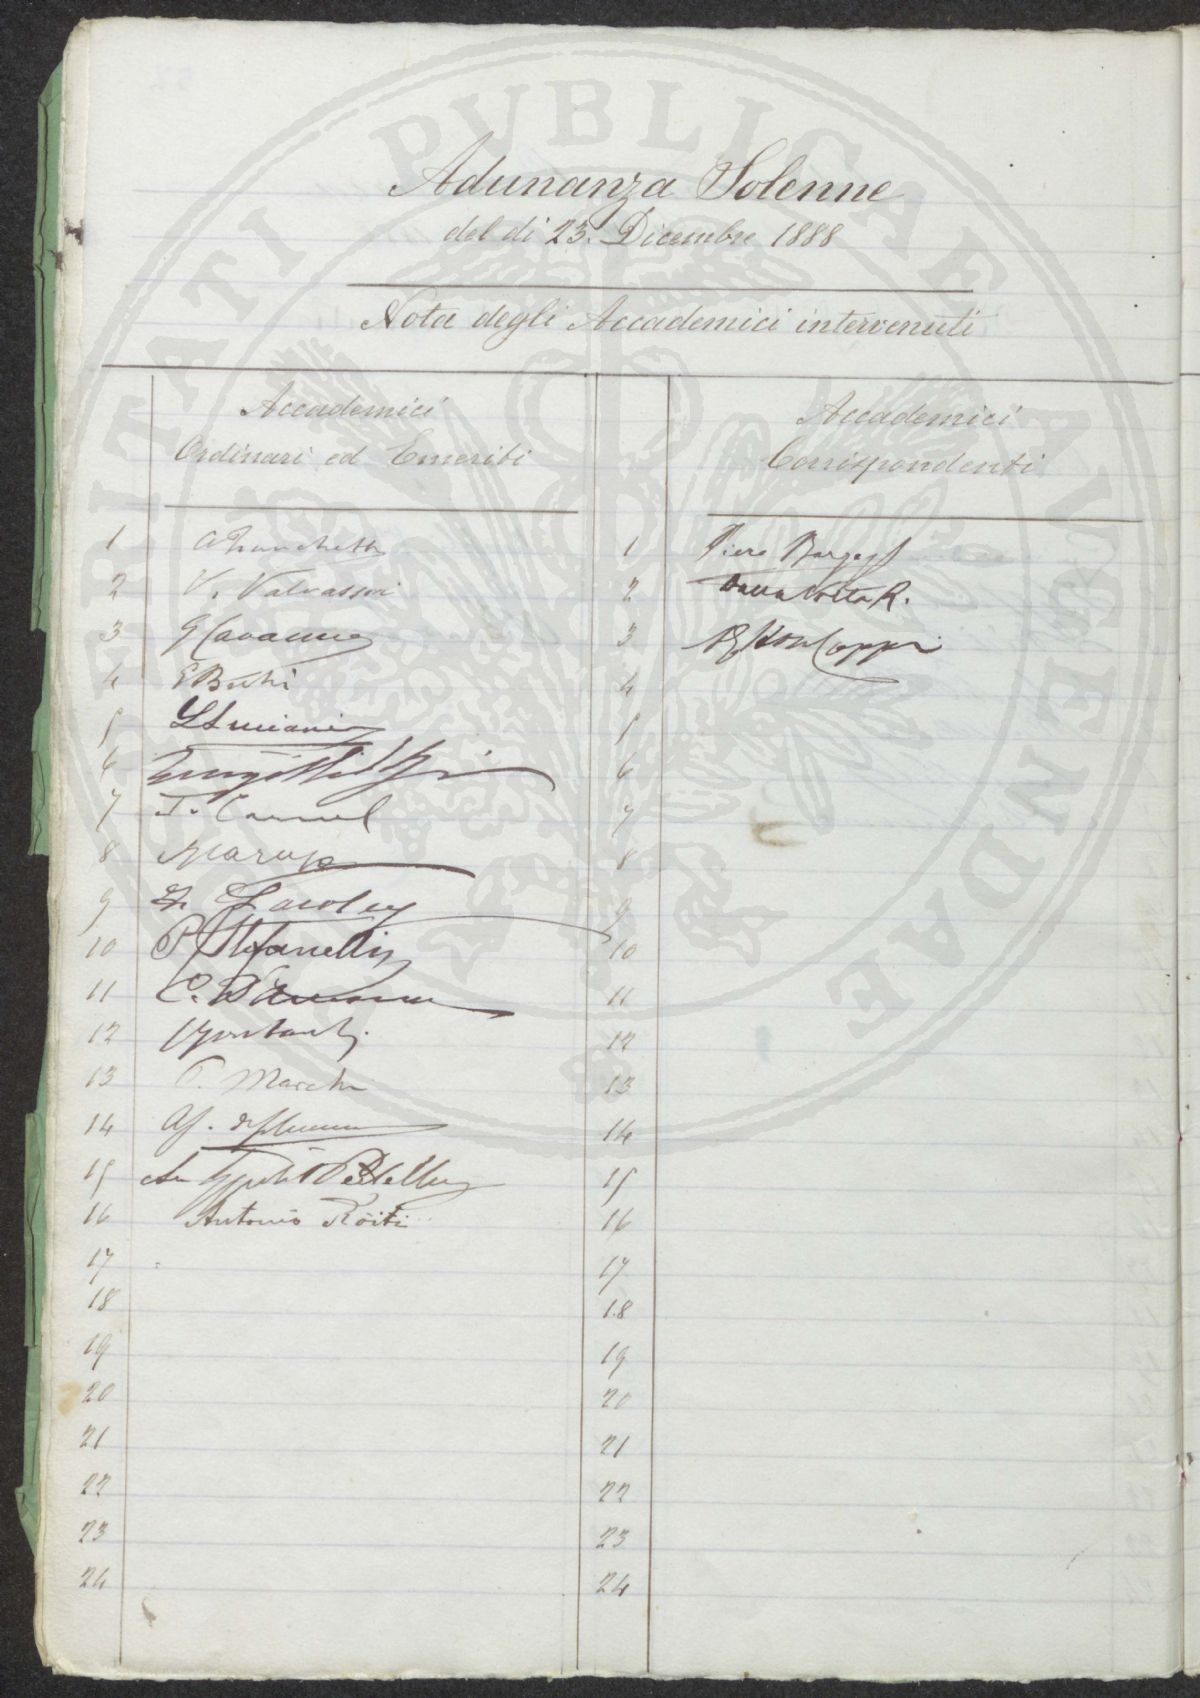 PROSPERITATI PUBLICAE AUGENDAE
Adunanza Solenne
del dì 23. Dicembre 1888
Nota degli Accademici intervenuti
Accademici
Ordinari ed Emeriti
Accademici
Corrispondenti
1 Franchetti
2 V. Valvassori
3 G Cavanna
4 E Bechi
5 L Luciani
6
7 T. Caruel
8
9
10 P. Stefanelli
11 C. D'Ancona
12
13 P. Marchi
14
15 Pestellini
16 Antonio Ròiti
17
18
19
20
21
22
23
24
1 Piero Bargagli
2 Dalla Volta R.
3 Coppi
4
5
6
7
8
9
10
11
12
13
14
15
16
17
18
19
20
21
22
23
24